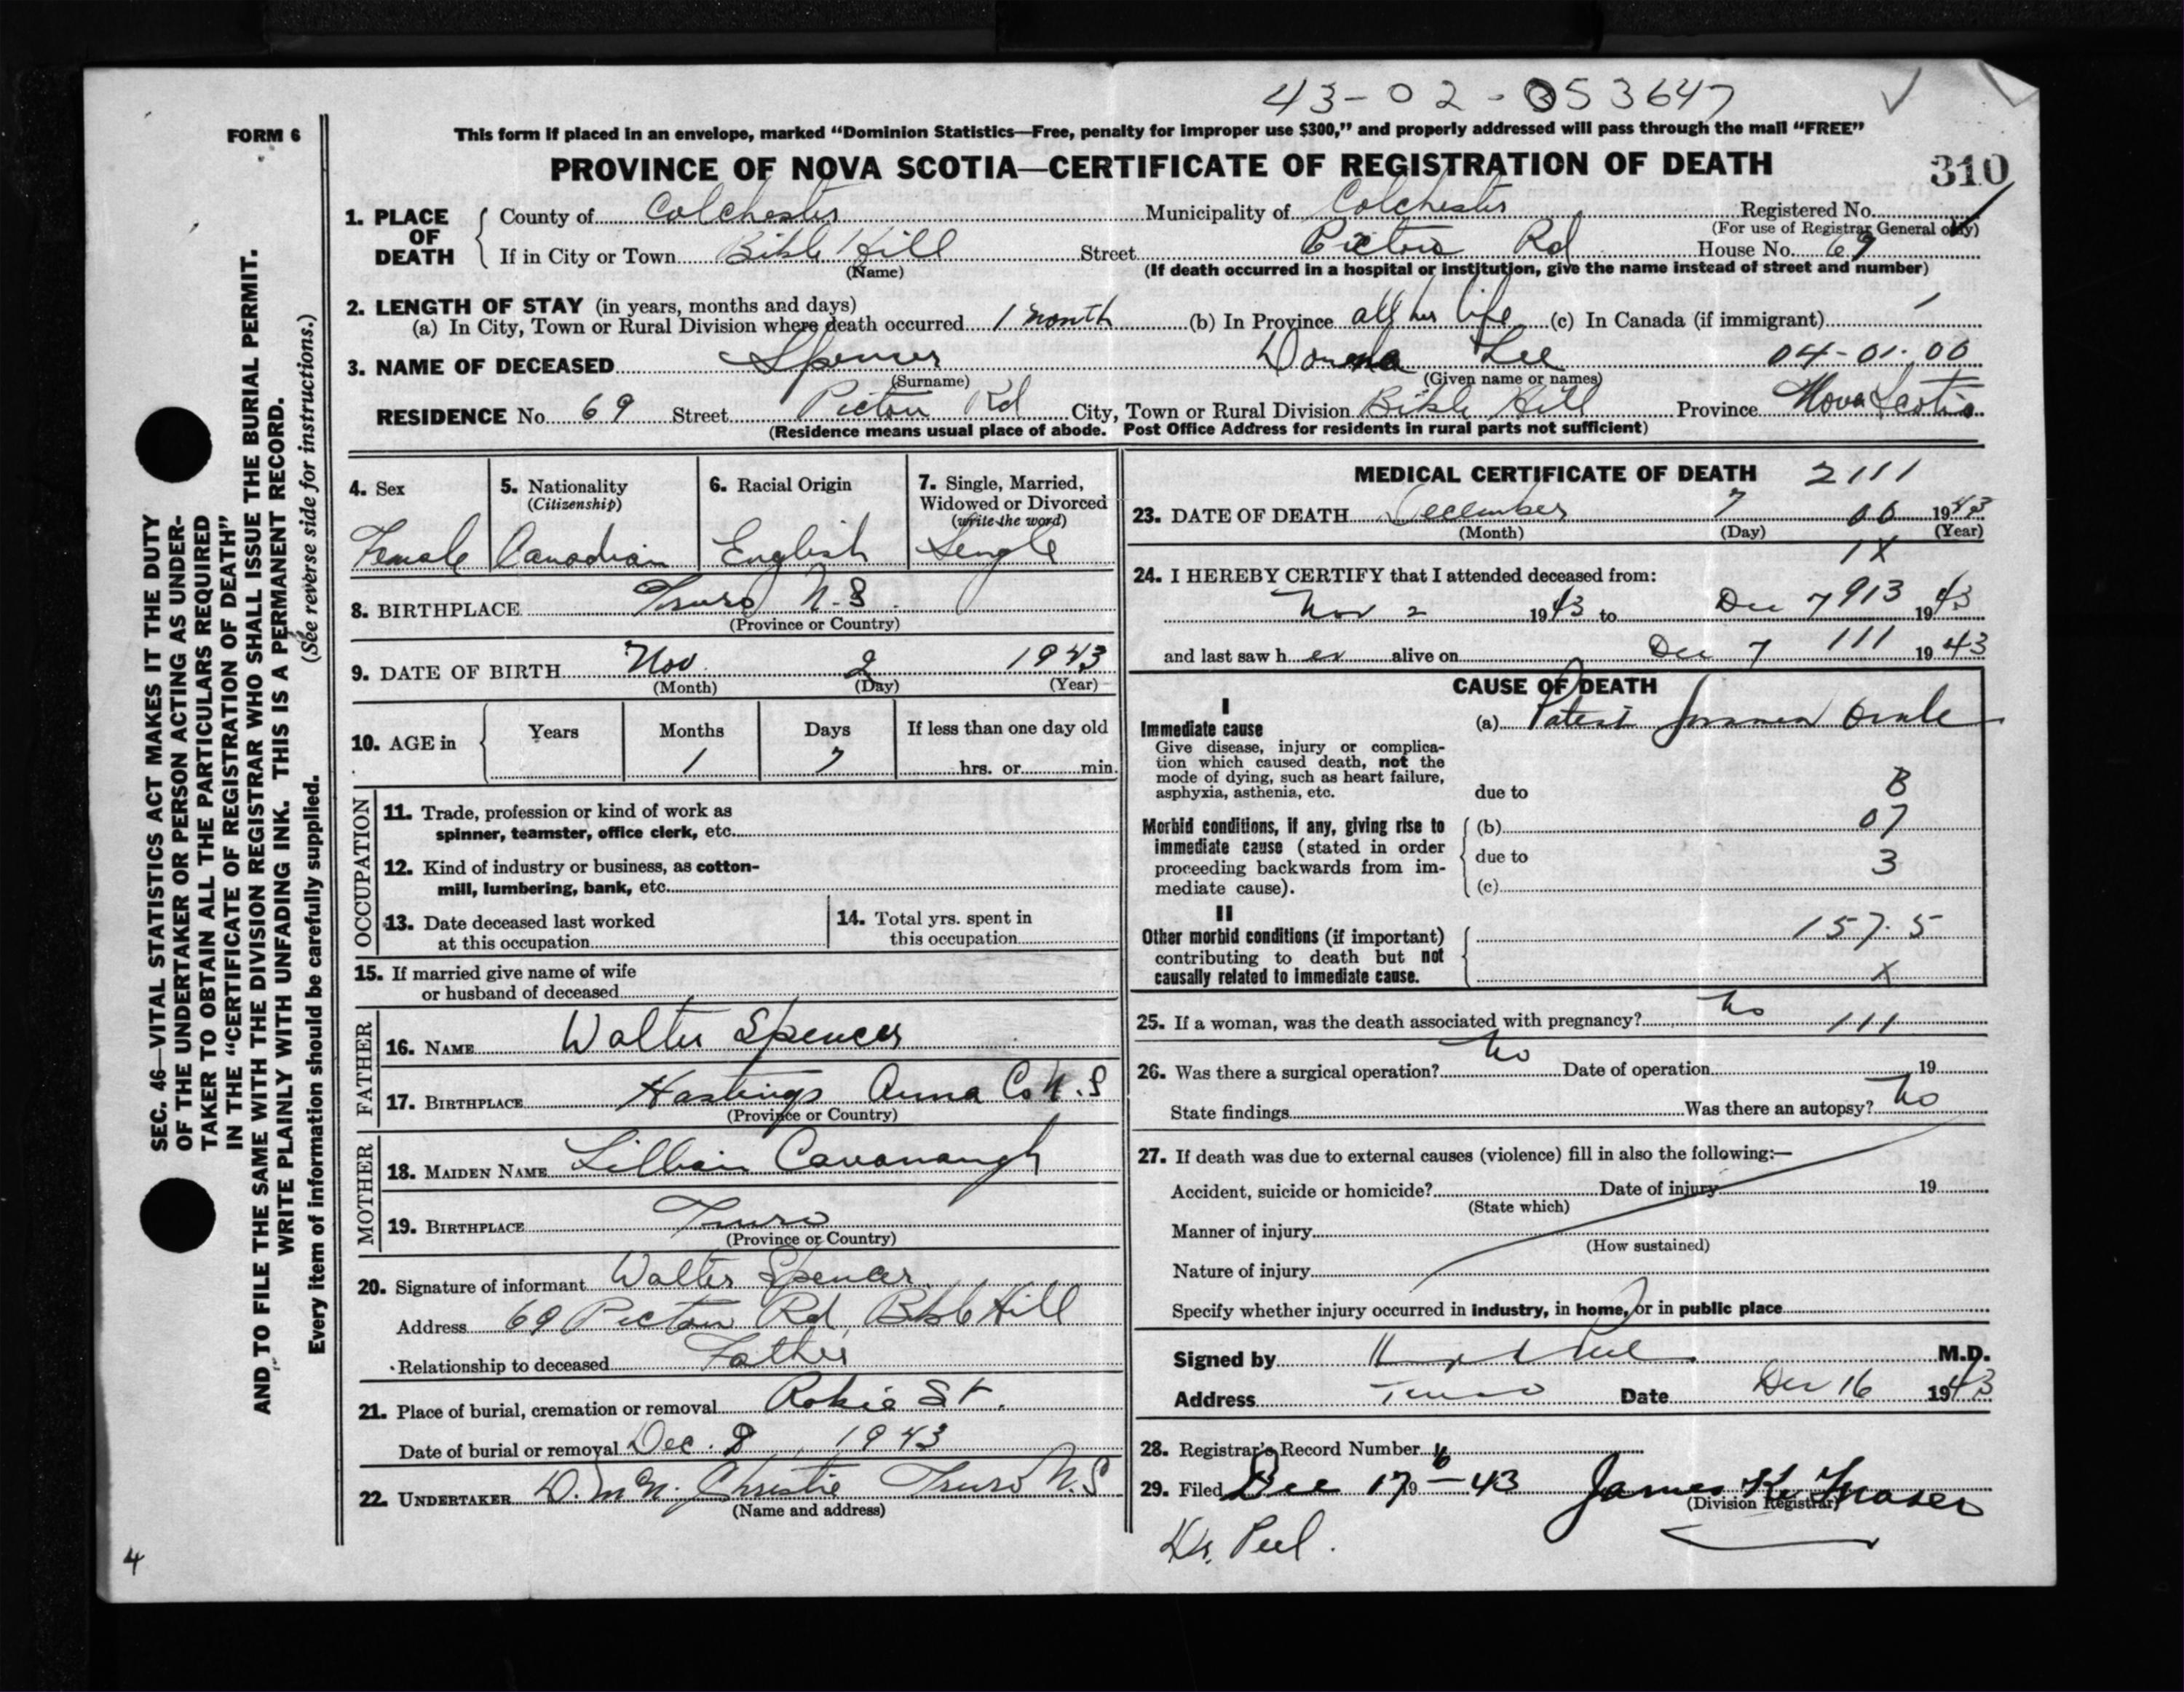 43-02-053647
FORM 6
This form if placed in an envelope, marked "Dominion Statistics—Free, penalty for improper use $300," and properly addressed will pass through the mail "FREE"
PROVINCE OF NOVA SCOTIA—CERTIFICATE OF REGISTRATION OF DEATH
310
1. PLACE OF DEATH
County of Colchester Municipality of Colchester Registered No.
(For use of Registrar General only)
If in City or Town Bible Hill Street Pictou Rd House No. 69
(Name) (If death occurred in a hospital or institution, give the name instead of street and number)
2. LENGTH OF STAY (in years, months and days)
(a) In City, Town or Rural Division where death occurred 1 month (b) In Province all her life (c) In Canada (if immigrant)
3. NAME OF DECEASED Spencer Donna Lee 04-01-00
(Surname) (Given name or names)
RESIDENCE No. 69 Street Pictou Rd City, Town or Rural Division Bible Hill Province Nova Scotia
(Residence means usual place of abode. Post Office Address for residents in rural parts not sufficient)
4. Sex
Female
5. Nationality
(Citizenship)
Canadian
6. Racial Origin
English
7. Single, Married,
Widowed or Divorced
(write the word)
Single
8. BIRTHPLACE Truro N.S.
(Province or Country)
9. DATE OF BIRTH Nov. 2 1943
(Month) (Day) (Year)
10. AGE in
Years Months Days If less than one day old
1 7 hrs. or min.
OCCUPATION
11. Trade, profession or kind of work as
spinner, teamster, office clerk, etc.
12. Kind of industry or business, as cotton-
mill, lumbering, bank, etc.
13. Date deceased last worked
at this occupation
14. Total yrs. spent in
this occupation
15. If married give name of wife
or husband of deceased
FATHER
16. NAME Walter Spencer
17. BIRTHPLACE Hastings Anna Co N.S
(Province or Country)
MOTHER
18. MAIDEN NAME Lillian Cavanaugh
19. BIRTHPLACE Truro
(Province or Country)
20. Signature of informant Walter Spencer
Address 69 Pictou Rd, Bible Hill
Relationship to deceased Father
21. Place of burial, cremation or removal Robie St.
Date of burial or removal Dec. 8, 1943
22. UNDERTAKER D. McN. Christie Truro N.S
(Name and address)
MEDICAL CERTIFICATE OF DEATH 2111
23. DATE OF DEATH December 7 1943
(Month) (Day) (Year)
1X
24. I HEREBY CERTIFY that I attended deceased from:
Nov 2 1943 to Dec 7 913 1943
and last saw her alive on Dec 7 111 1943
CAUSE OF DEATH
I
Immediate cause
Give disease, injury or complica-
tion which caused death, not the
mode of dying, such as heart failure,
asphyxia, asthenia, etc.
(a) Patent foramen ovale
due to B
Morbid conditions, if any, giving rise to
immediate cause (stated in order
proceeding backwards from im-
mediate cause).
(b) 07
due to 3
(c)
II
Other morbid conditions (if important)
contributing to death but not
causally related to immediate cause.
157.5
X
25. If a woman, was the death associated with pregnancy? No 111
26. Was there a surgical operation? No Date of operation 19
State findings Was there an autopsy? No
27. If death was due to external causes (violence) fill in also the following:—
Accident, suicide or homicide? Date of injury 19
(State which)
Manner of injury
(How sustained)
Nature of injury
Specify whether injury occurred in industry, in home, or in public place
Signed by Peel M.D.
Address Truro Date Dec 16 1943
28. Registrar's Record Number
29. Filed Dec 17 19-43 James K. Fraser
(Division Registrar)
Dr. Peel.
4
SEC. 46—VITAL STATISTICS ACT MAKES IT THE DUTY
OF THE UNDERTAKER OR PERSON ACTING AS UNDER-
TAKER TO OBTAIN ALL THE PARTICULARS REQUIRED
IN THE "CERTIFICATE OF REGISTRATION OF DEATH"
AND TO FILE THE SAME WITH THE DIVISION REGISTRAR WHO SHALL ISSUE THE BURIAL PERMIT.
WRITE PLAINLY WITH UNFADING INK. THIS IS A PERMANENT RECORD.
(See reverse side for instructions.)
Every item of information should be carefully supplied.